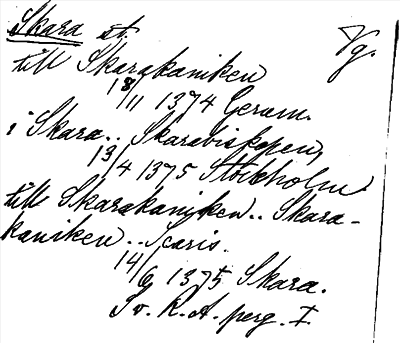 Skara st. Vg.
till Skarakaniken
18/11 1374 Gerum.
i Skara.. Skarabiskopen,
13/4 1375 Stockholm
till Skarakaniken.. Skara-
kaniken.. Scaris.
14/6 1375 Skara.
Sv. R. A. perg. I.